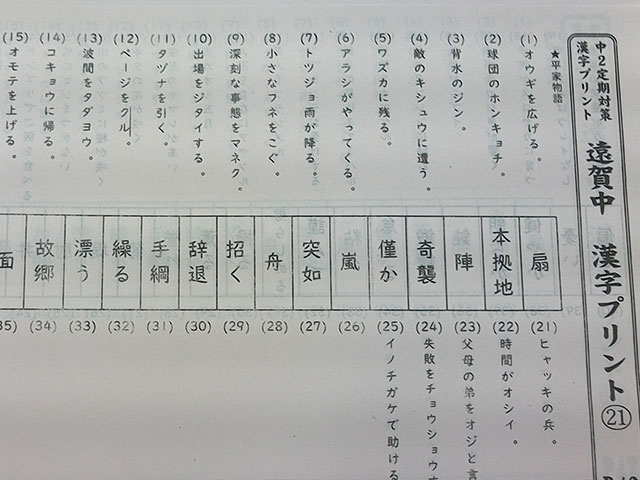 中2定期対策
漢字プリント
遠賀中 漢字プリント㉑
★平家物語
(1) オウギを広げる。
(2) 球団のホンキョチ。
(3) 背水のジン。
(4) 敵のキシュウに遭う。
(5) ワズカに残る。
(6) アラシがやってくる。
(7) トツジョ雨が降る。
(8) 小さなフネをこぐ。
(9) 深刻な事態をマネク。
(10) 出場をジタイする。
(11) タヅナを引く。
(12) ページをクル。
(13) 波間をタダヨウ。
(14) コキョウに帰る。
(15) オモテを上げる。
扇
本拠地
陣
奇襲
僅か
嵐
突如
舟
招く
辞退
手綱
繰る
漂う
故郷
面
(21) ヒャッキの兵。
(22) 時間がオシイ。
(23) 父母の弟をオジと言
(24) 失敗をチョウショウす
(25) イノチガケで助ける
(26)
(27)
(28)
(29)
(30)
(31)
(32)
(33)
(34)
35)